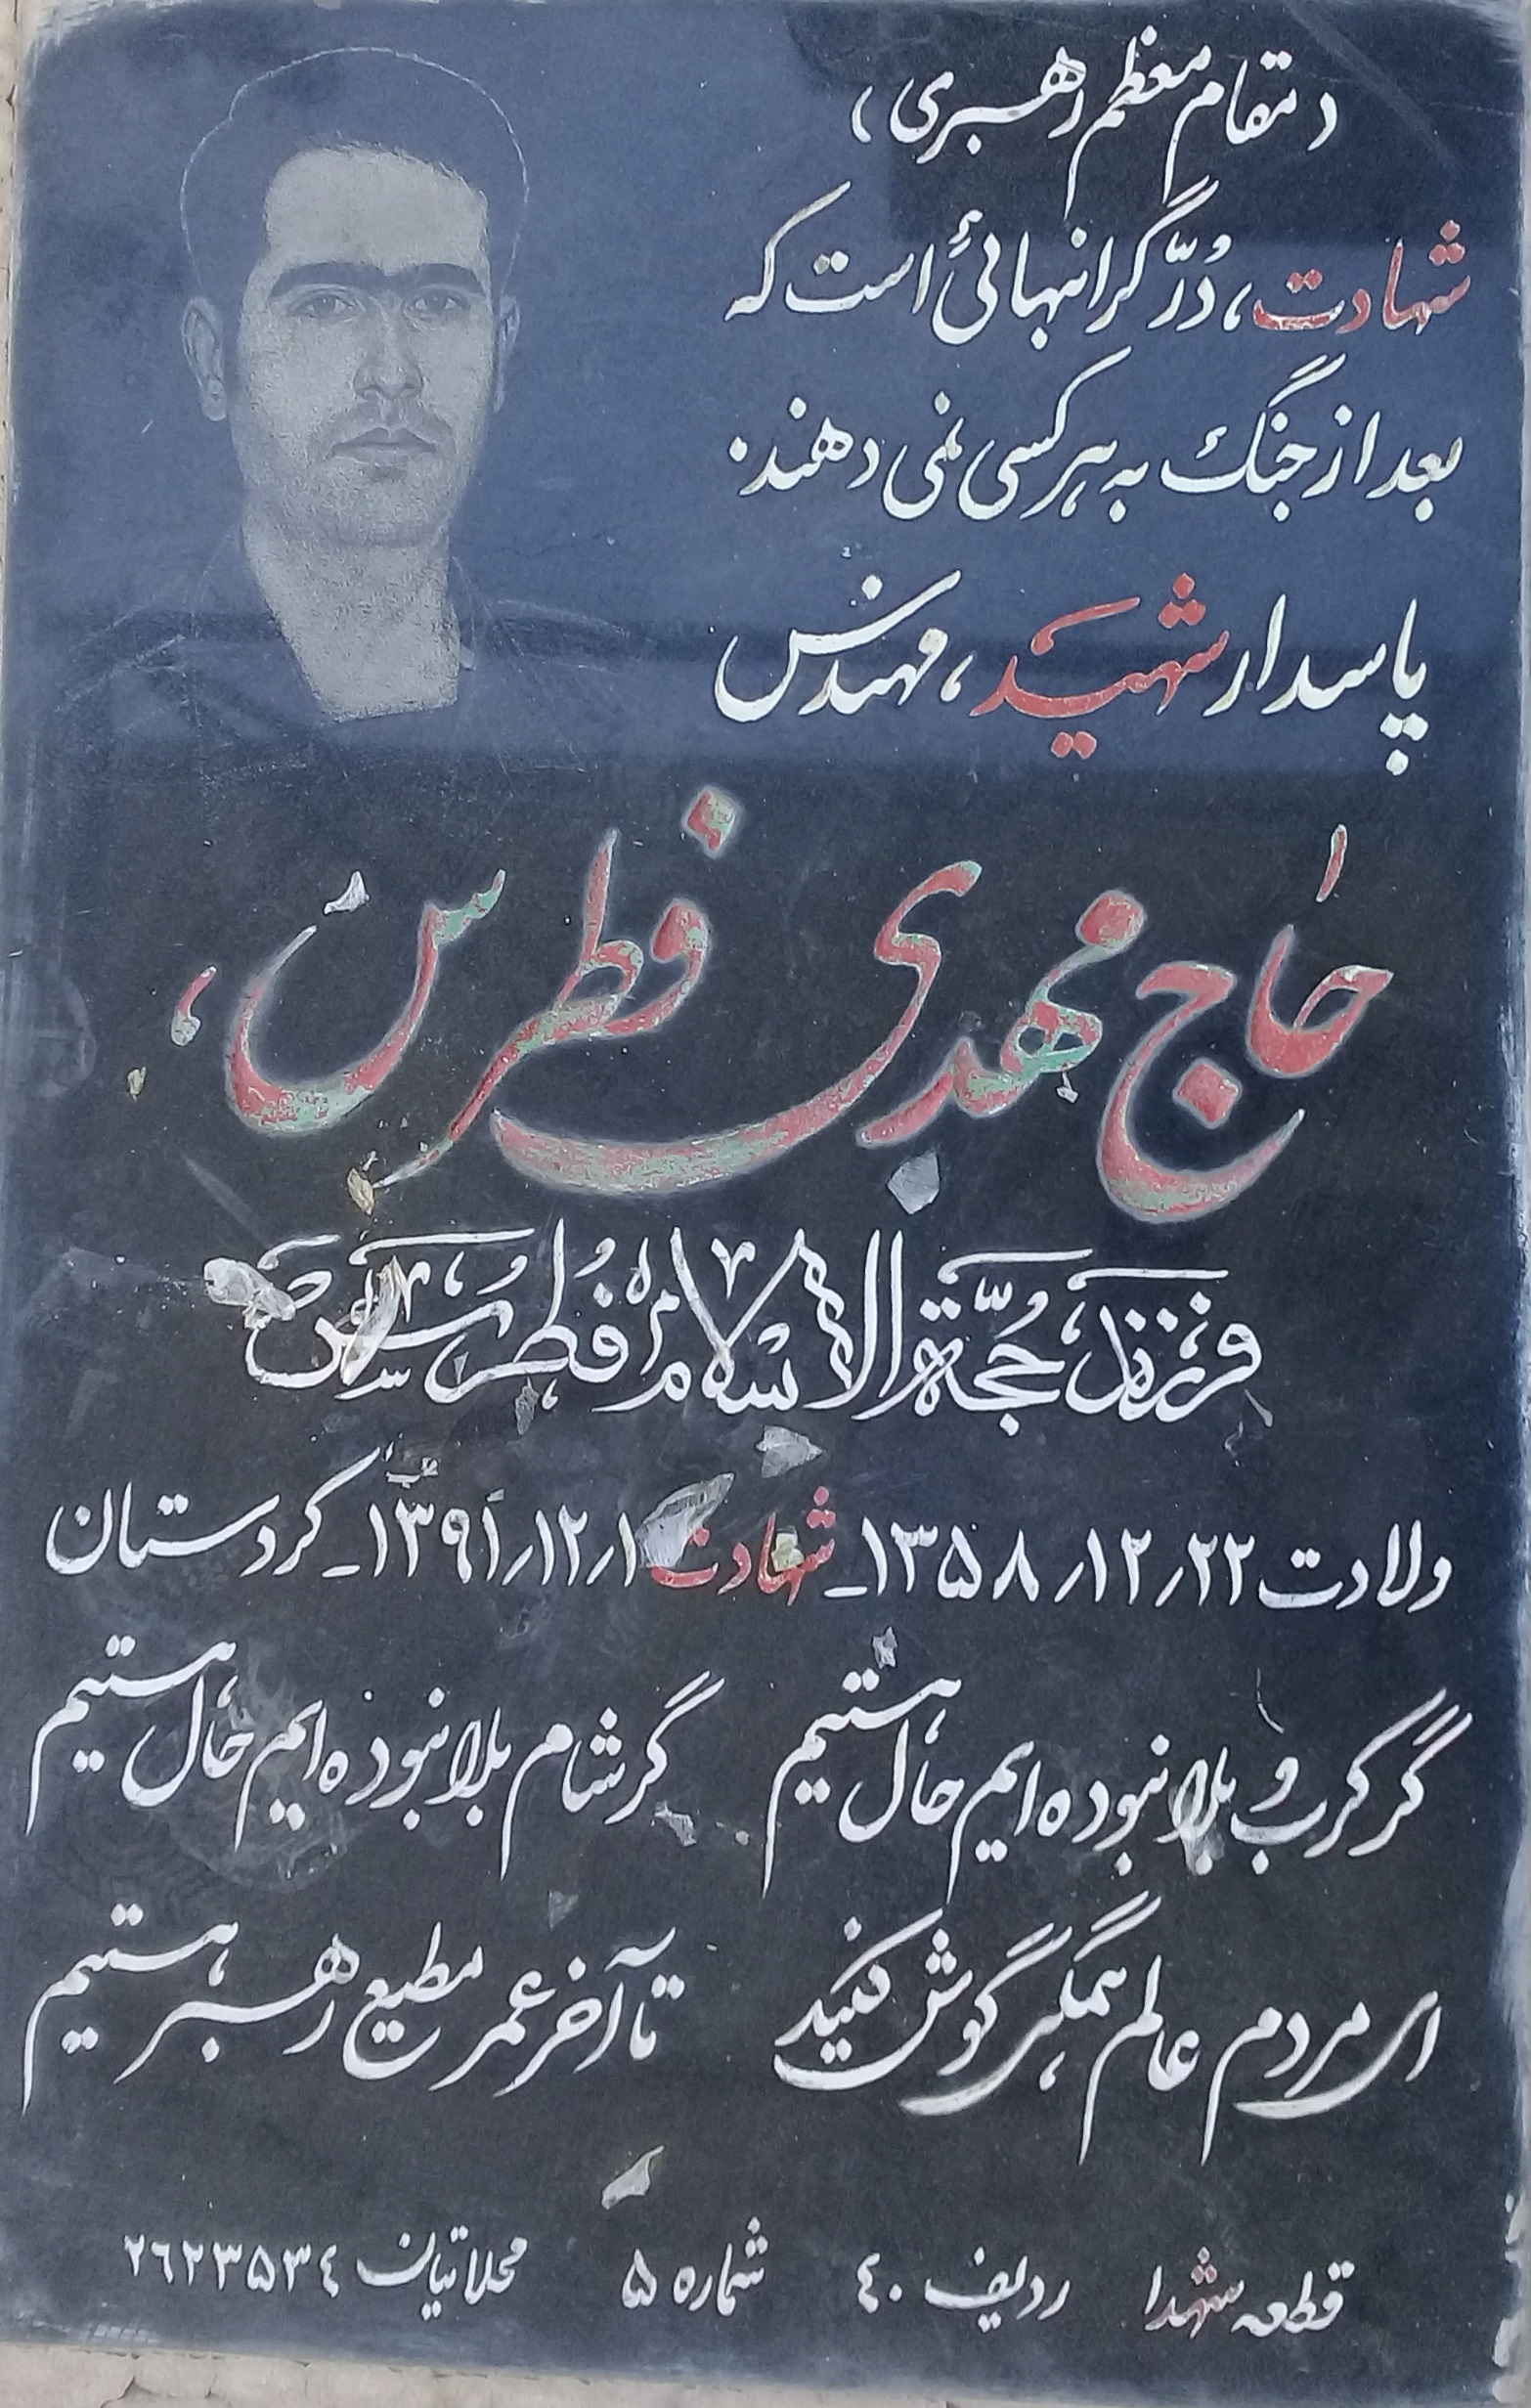 د مقام معظم رهبری ،
شهادت ، دُرّ گرانبهائی است که
بعد از جنگ به هر کسی نمی دهند .
پاسدار شهید ، مهندس
حاج مهدی فطرس ،
فرزند حُجّة الاسلام فُطرُس
ولادت ۲۲/۱۲/۱۳۵۸ ـ شهادت ۱/۱۲/۱۳۹۱ ـ کردستان
گر کرب و بلا نبوده ایم حال هستیم گر شام بلا نبوده ایم حال هستیم
ای مردم عالم همگی گوش کنید تا آخر عمر مطیع رهبر هستیم
قطعه شهدا ردیف ٤٠ شماره ۵ محلاتیان ۲٦۲۳۵۳٤